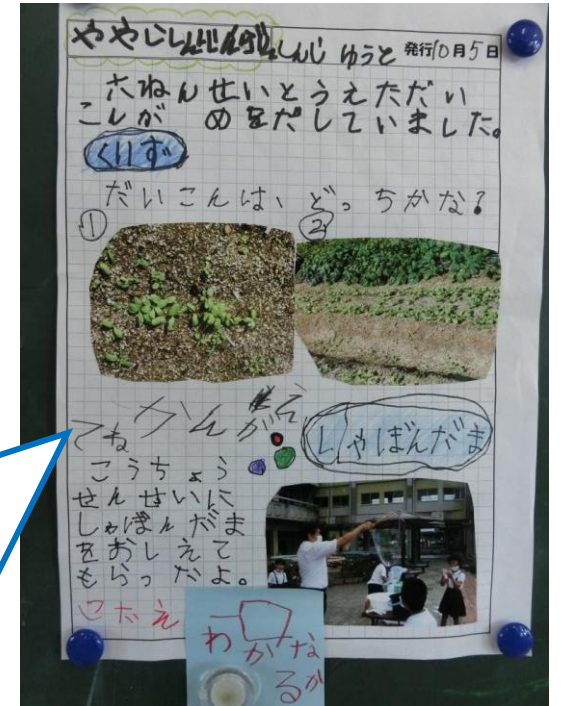 ややしんじんぶん しんじ ゆうと 発行10月5日
六ねんせいとうえただい
こんが めをだしていました。
くいず
だいこんは、どっちかな?
① ②
かんがえ
てね
しゃぼんだま
こうちょう
せんせいに
しゃぼんだま
をおしえて
もらったよ。
こたえ
わかるかな